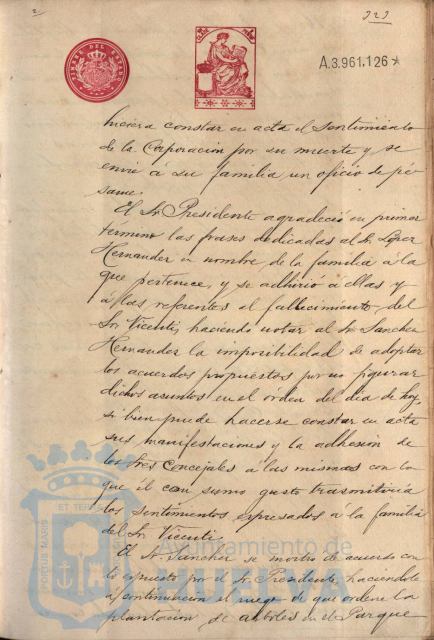 2
323
TIMBRE DEL ESTADO
A.3.961.126*
hiciera constar en acta el sentimiento
de la Corporacion por su muerte y se
envie á su familia un oficio de pé
same.
El Sr. Presidente agradeció en primer
término las frases dedicadas al Sr. Lopez
Hernandez en nombre de la familia á la
que pertenece, y se adhirió a ellas y
á las referentes al fallecimiento del
Sr. Vicenti, haciendo notar al Sr. Sanchez
Hernandez la imposibilidad de adoptar
los acuerdos propuestos por no figurar
dichos asuntos en el orden del dia de hoy,
si bien puede hacerse constar en acta
sus manifestaciones y la adhesion de
los tres Concejales á las mismas con lo
que él con sumo gusto trasmitiria
los sentimientos expresados á la familia
del Sr. Vicenti.
El Sr. Sanchez se mostró de acuerdo con
lo expuesto por el Sr. Presidente, haciendole
á continuacion el ruego de que ordene la
plantacion de arboles en el Parque
PORTUS MARIS
ET TERRE
Ayuntamiento de